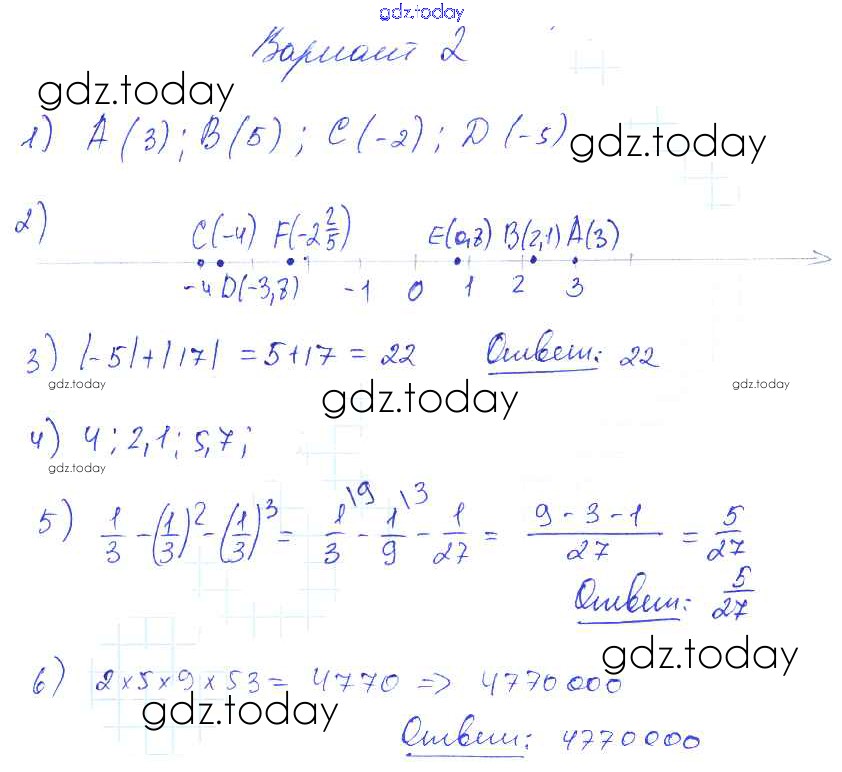 gdz.today
Вариант 2
gdz.today
1) A(3); B(5); C(-2); D(-5)
gdz.today
2)
C(-4) F(-2 2/5) E(0,8) B(2,1) A(3)
-4 D(-3,8) -1 0 1 2 3
3) |-5|+|17| = 5+17 = 22 Ответ: 22
gdz.today gdz.today gdz.today
4) 4; 2,1; 5,7;
gdz.today
5) 1/3 - (1/3)² - (1/3)³ = 1/3 \9 - 1/9 \3 - 1/27 = (9-3-1)/27 = 5/27
Ответ: 5/27
gdz.today
6) 2×5×9×53 = 4770 => 4770000
gdz.today
Ответ: 4770000